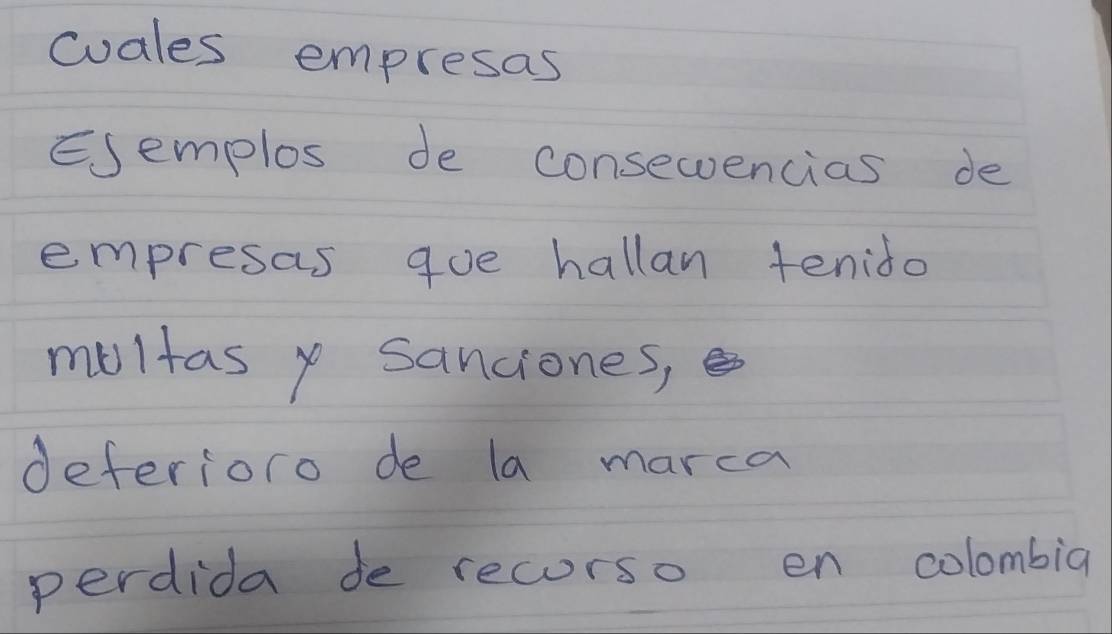 cuales empresas
Ejemplos de consecuencias de
empresas que hallan tenido
multas y sanciones,
deterioro de la marca
perdida de recurso en colombia